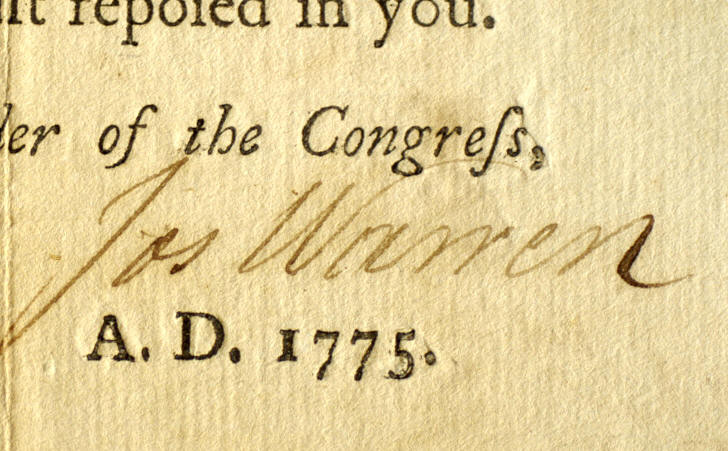 repoſed in you.
of the Congreſs,
Jos Warren
A. D. 1775.